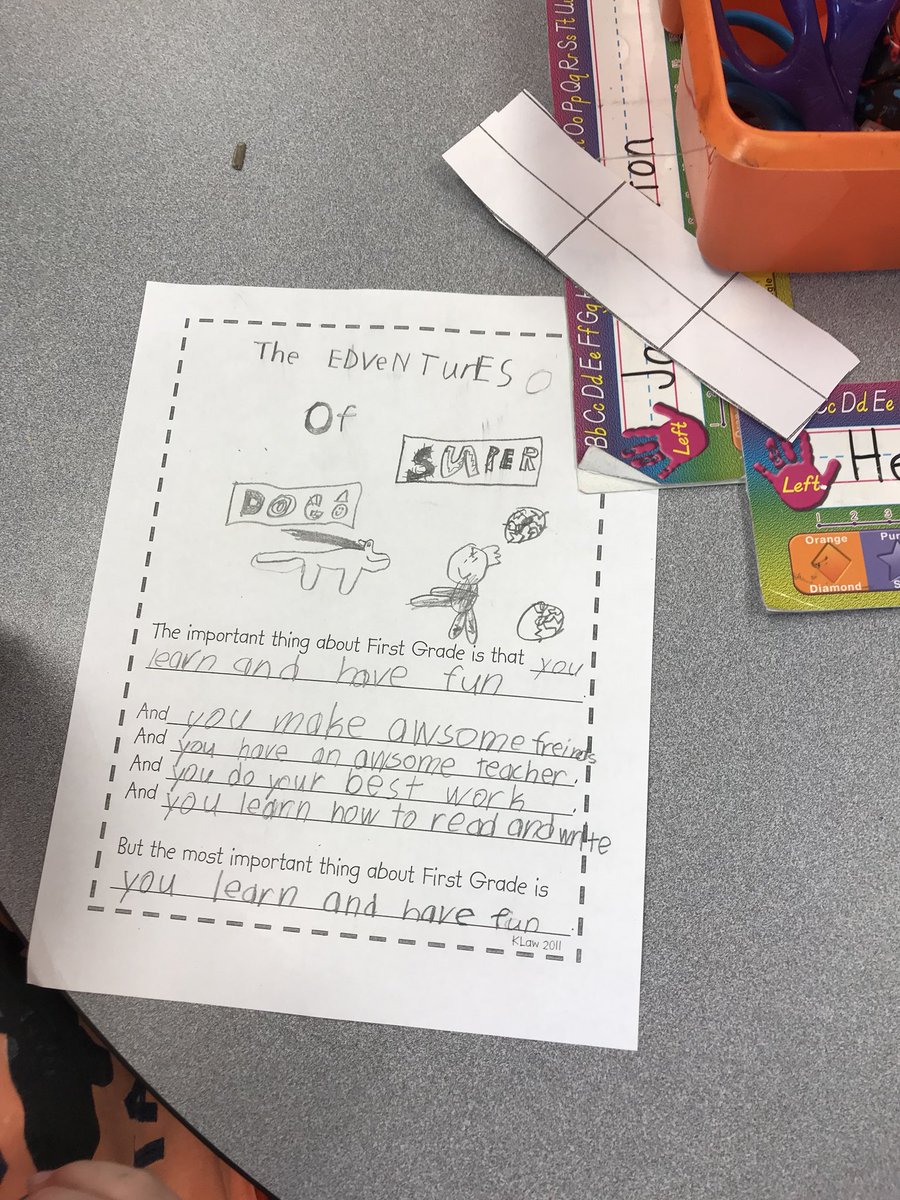 The EDVENTurES
Of
SUPER
DOGS
The important thing about First Grade is that you
learn and have fun.
And you make awsome freinds
And you have an awsome teacher,
And you do your best work,
And you learn how to read and write
But the most important thing about First Grade is
you learn and have fun.
KLaw 2011
Oo Pp Qq Rr Ss Tt Uu
Bb Cc Dd Ee Ff Gg
Ja
ion
Left
Cc Dd Ee
He
Left
1 2 3
Orange
Diamond